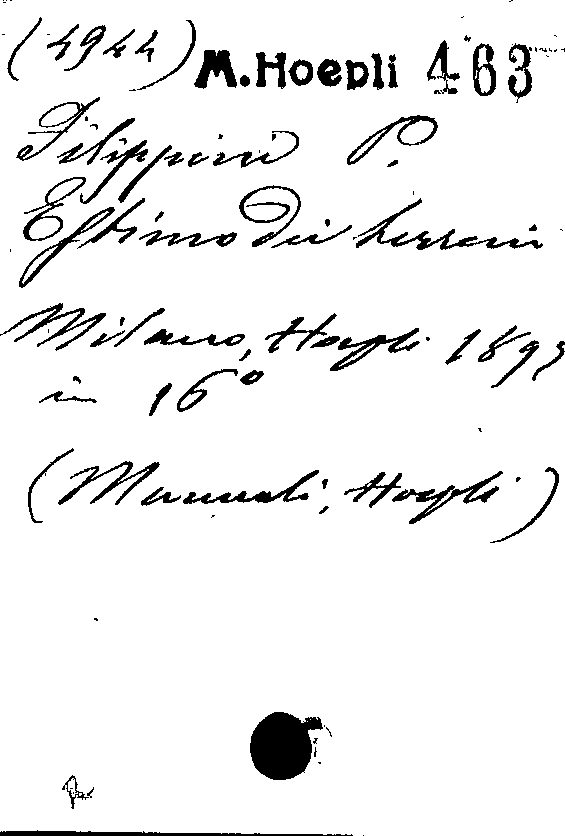 (4944) M. Hoepli 463
Filippini P.
Estimo dei terreni
Milano, Hoepli 1893
in 16°
(Manuali, Hoepli)